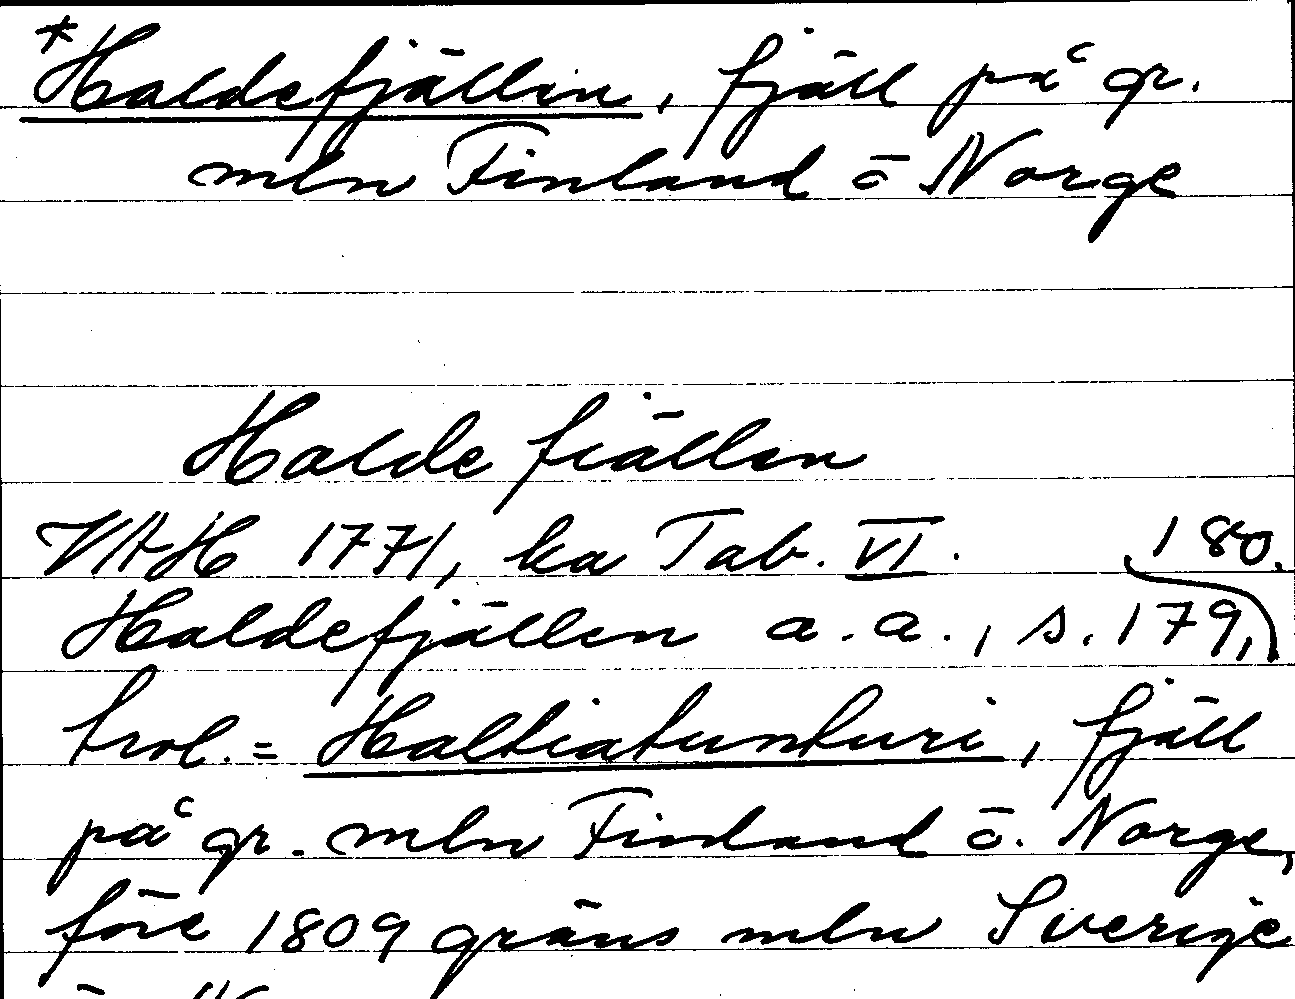 *Haldefjällen, fjäll på gr.
mln Finland ö Norge
Halde fiällen
VAH 1771, ka Tab. VI. 180.
Haldefjällen a.a., s. 179,
trol. = Haltiatunturi, fjäll
på gr. mln Finland ö. Norge,
före 1809 gräns mln Sverige